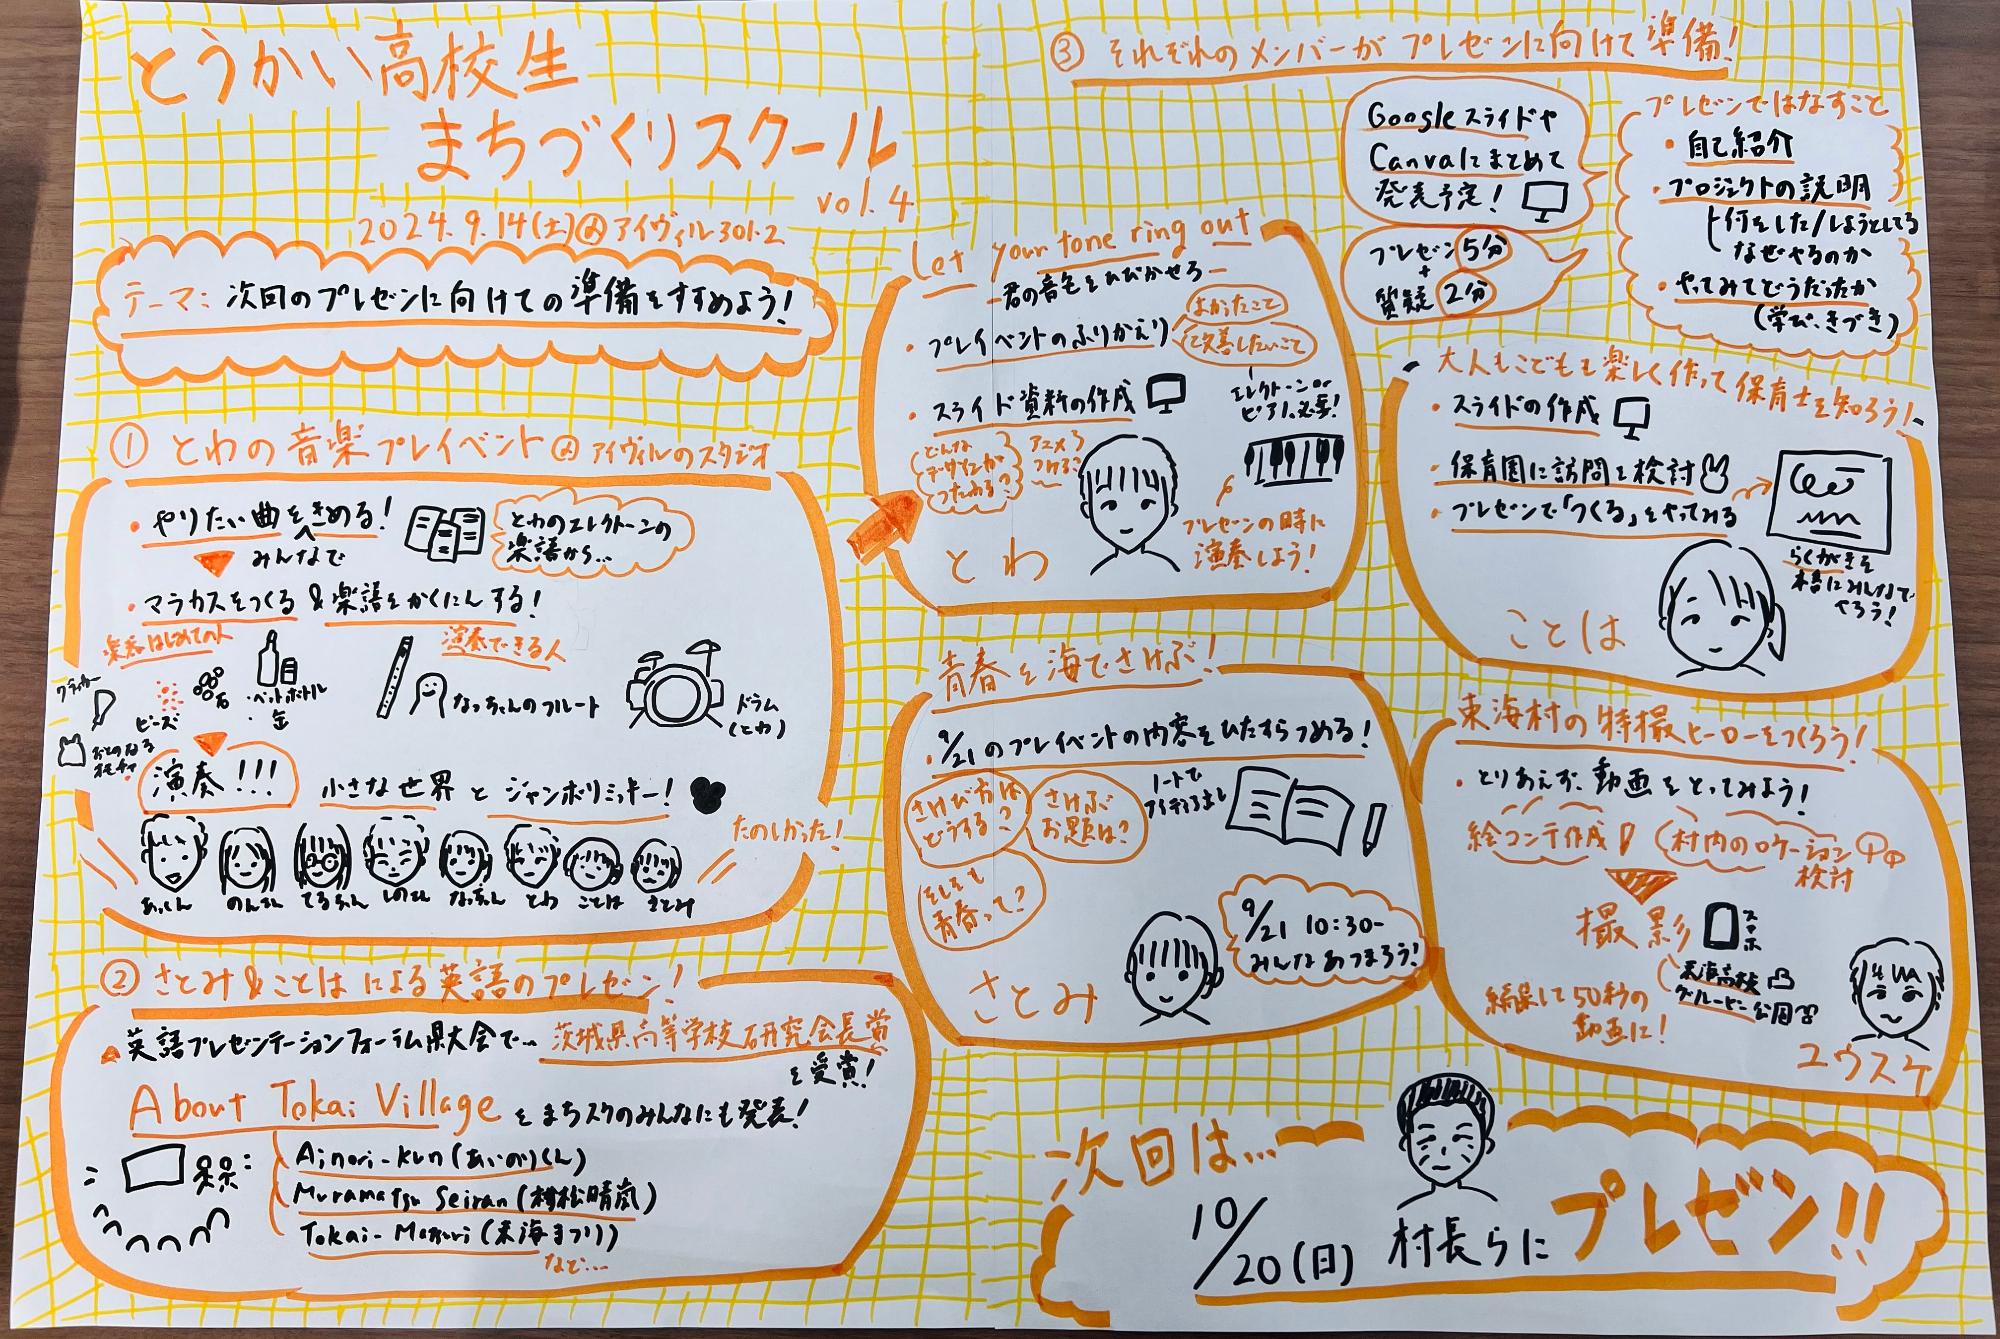 とうかい高校生
まちづくりスクール
vol.4
2024.9.14(土)@アイヴィル301.2
テーマ: 次回のプレゼンに向けての準備をすすめよう!
① とわの音楽プレイベント @ アイヴィルのスタジオ
・やりたい曲をきめる!
みんなで
とわのエレクトーンの
楽譜から…
・マラカスをつくる & 楽譜をかくにんする!
楽器はじめての人
演奏できる人
クラッカー
ビーズ
石
ペットボトル
缶
おとのなる
オモチャ
なっちゃんのフルート
ドラム
(とわ)
演奏!!!
小さな世界 と ジャンボリミッキー!
たのしかった!
あっくん
のんさん
てるちゃん
しのさん
なっちゃん
とわ
ことは
さとみ
② さとみ&ことはによる英語のプレゼン!
英語プレゼンテーションフォーラム県大会で…茨城県高等学校研究会長賞
を受賞!
About Tokai Village をまちスクのみんなにも発表!
Ainori-kun(あいのりくん)
Muramatsu Seiran(村松晴嵐)
Tokai-Matsuri(東海まつり)
など…
③ それぞれのメンバーがプレゼンに向けて準備!
Googleスライドや
Canvaにまとめて
発表予定!
プレゼン5分
+
質疑2分
プレゼンではなすこと
・自己紹介
・プロジェクトの説明
何をした/しようとしてる
なぜやるのか
・やってみてどうだったか
(学び、きづき)
Let your tone ring out
ー君の音色をひびかせろー
・プレイベントのふりかえり
よかったこと
改善したいこと
・スライド資料の作成
エレクトーンor
ピアノ必要!
どんな
データだが
つたわる?
アニメも
つける?
プレゼンの時に
演奏しよう!
とわ
大人もこどもも楽しく作って保育士を知ろう!
・スライドの作成
・保育園に訪問を検討
・プレゼンで「つくる」をやってみる
らくがきを
みんなで
やろう!
ことは
青春を海でさけぶ!
・9/21のプレイベントの内容をひたすらつめる!
さけび方は
どうする?
さけぶ
お題は?
そもそも
青春って?
ノートで
アイデア出し
9/21 10:30-
みんなあつまろう!
さとみ
東海村の特撮ヒーローをつくろう!
・とりあえず、動画をとってみよう!
絵コンテ作成
村内のロケーション
検討
撮影
スマホ
東海高校
公園
編集して50秒の
動画に!
ユウスケ
次回は…
10/20(日) 村長らに プレゼン!!